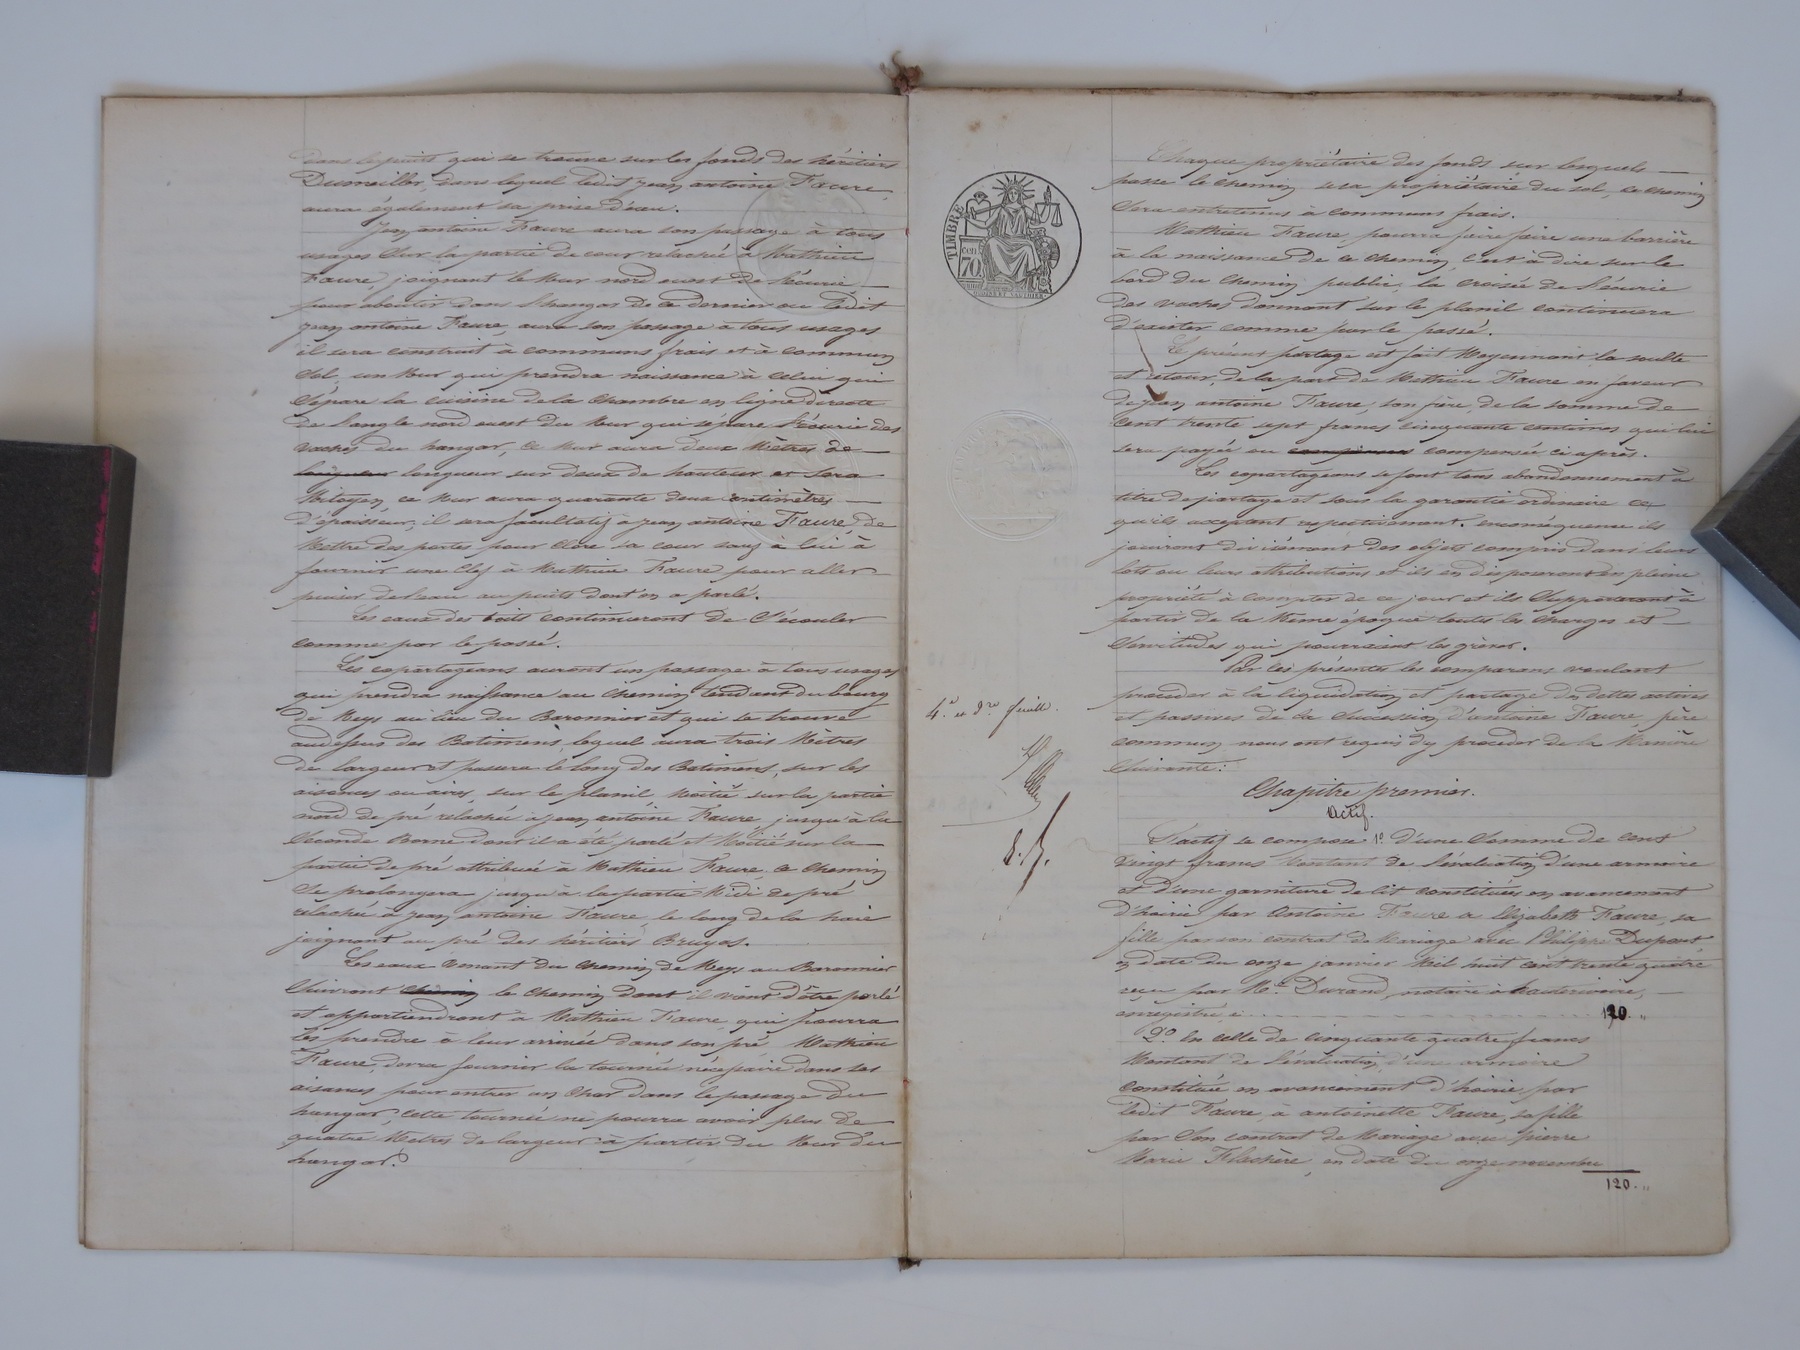 dans le puits qui se trouve sur les fonds des héritiers
Dumeiller, dans lequel ledit jean antoine Faure,
aura également sa prise d'eau.
Jean antoine Faure aura son passage à tous
usages sur la partie de cour relachée à Mathieu
Faure, joignant le Mur nord ouest de l'écurie
pour aboutir dans l'hangar de ce dernier ou ledit
jean antoine Faure, aura son passage à tous usages
il sera construit à communs frais et à commun
sol, un Mur qui prendra naissance à celui qui
sépare la cuisine de la chambre en ligne directe
de l'angle nord ouest du Mur qui sépare l'écurie des
vaches du hangar, ce mur aura deux Mètres de
longueur sur deux de hauteur et sera
Mitoyen ce mur aura quarante deux centimètres
d'épaisseur, il sera facultatif à jean antoine Faure, de
Mettre des portes pour clore sa cour sauf à lui à
fournir une clef à Mathieu Faure pour aller
puiser de l'eau au puits dont on a parlé.
Les eaux des toits continueront de s'écouler
comme par le passé.
Les copartageans auront un passage à tous usages
qui prendra naissance au chemin tendant du bourg
de Meys au lieu du Baronnier et qui se trouve
audessus des Batimens, lequel aura trois Mètres
de largeur et passera le long des Batimens, sur les
aisances ou aires, sur le planil Moitié sur la partie
nord de pré relachée à jean antoine Faure jusqu'à la
seconde Borne dont il a été parlé et Moitié sur la
partie de pré attribuée à Mathieu Faure, ce chemin
se prolongera jusqu'à la partie Midi de pré
relachée à jean antoine Faure, le long de la haie
joignant au pré des héritiers Bruyas.
Les eaux venant du chemin de Meys au Baronnier
suivront chemin le chemin dont il vient d'être parlé
et appartiendront à Mathieu Faure, qui pourra
les prendre à leur arrivée dans son pré, Mathieu
Faure, devra fournir la tournée nécessaire dans ses
aisances pour entrer un char dans le passage du
hangar, cette tournée ne pourra avoir plus de
quatre Mètres de largeur à partir du Mur du
hangar.
TIMBRE
cen
70
4.e et d.re feuille.
Chaque propriétaire des fonds sur lesquels
passe le chemin sera propriétaire du sol, ce chemin
sera entretenu à communs frais.
Mathieu Faure, pourra faire faire une barrière
à la naissance de ce chemin c'est à dire sur le
bord du chemin public, la croisée de l'écurie
des vaches donnant sur le planil continuera
d'exister comme par le passé.
Le présent partage est fait Moyennant la soulte
et retour, de la part de Mathieu Faure en faveur
de jean antoine Faure, son frère, de la somme de
cent trente sept francs cinquante centimes qui lui
sera payée ou compensée ci après.
Les copartageans se font tous abandonnement à
titre de partage et sous la garantie ordinaire ce
qu'ils acceptent respectivement. en conséquence ils
jouiront divisément des objets compris dans leurs
lots ou leurs attributions et ils en disposeront en pleine
propriété à compter de ce jour et ils supporteront à
partir de la Même époque toutes les charges et
servitudes qui pourraient les grever.
Par ces présentes les comparans voulant
procéder à la liquidation et partage des dettes actives
et passives de la succession d'antoine Faure, père
commun nous ont requis d'y procéder de la Manière
suivante:
Chapitre premier.
Actif.
L'actif se compose 1º d'une somme de cent
vingt francs Montant de l'évaluation d'une armoire
et d'une garniture de lit constituées en avancement
d'hoirie par Antoine Faure à Elizabeth Faure, sa
fille par son contrat de Mariage avec Philippe Dupont
en date du onze janvier Mil huit cent trente quatre
reçu par Me Durand, notaire à hauterivoire,
enregistré ci . . . . . . . . . . 120. "
2º En celle de cinquante quatre francs
Montant de l'évaluation, d'une armoire
constituée en avancement d'hoirie par
ledit Faure, à antoinette Faure, sa fille
par son contrat de Mariage avec pierre
Marie Flachère, en date du onze novembre
120. "